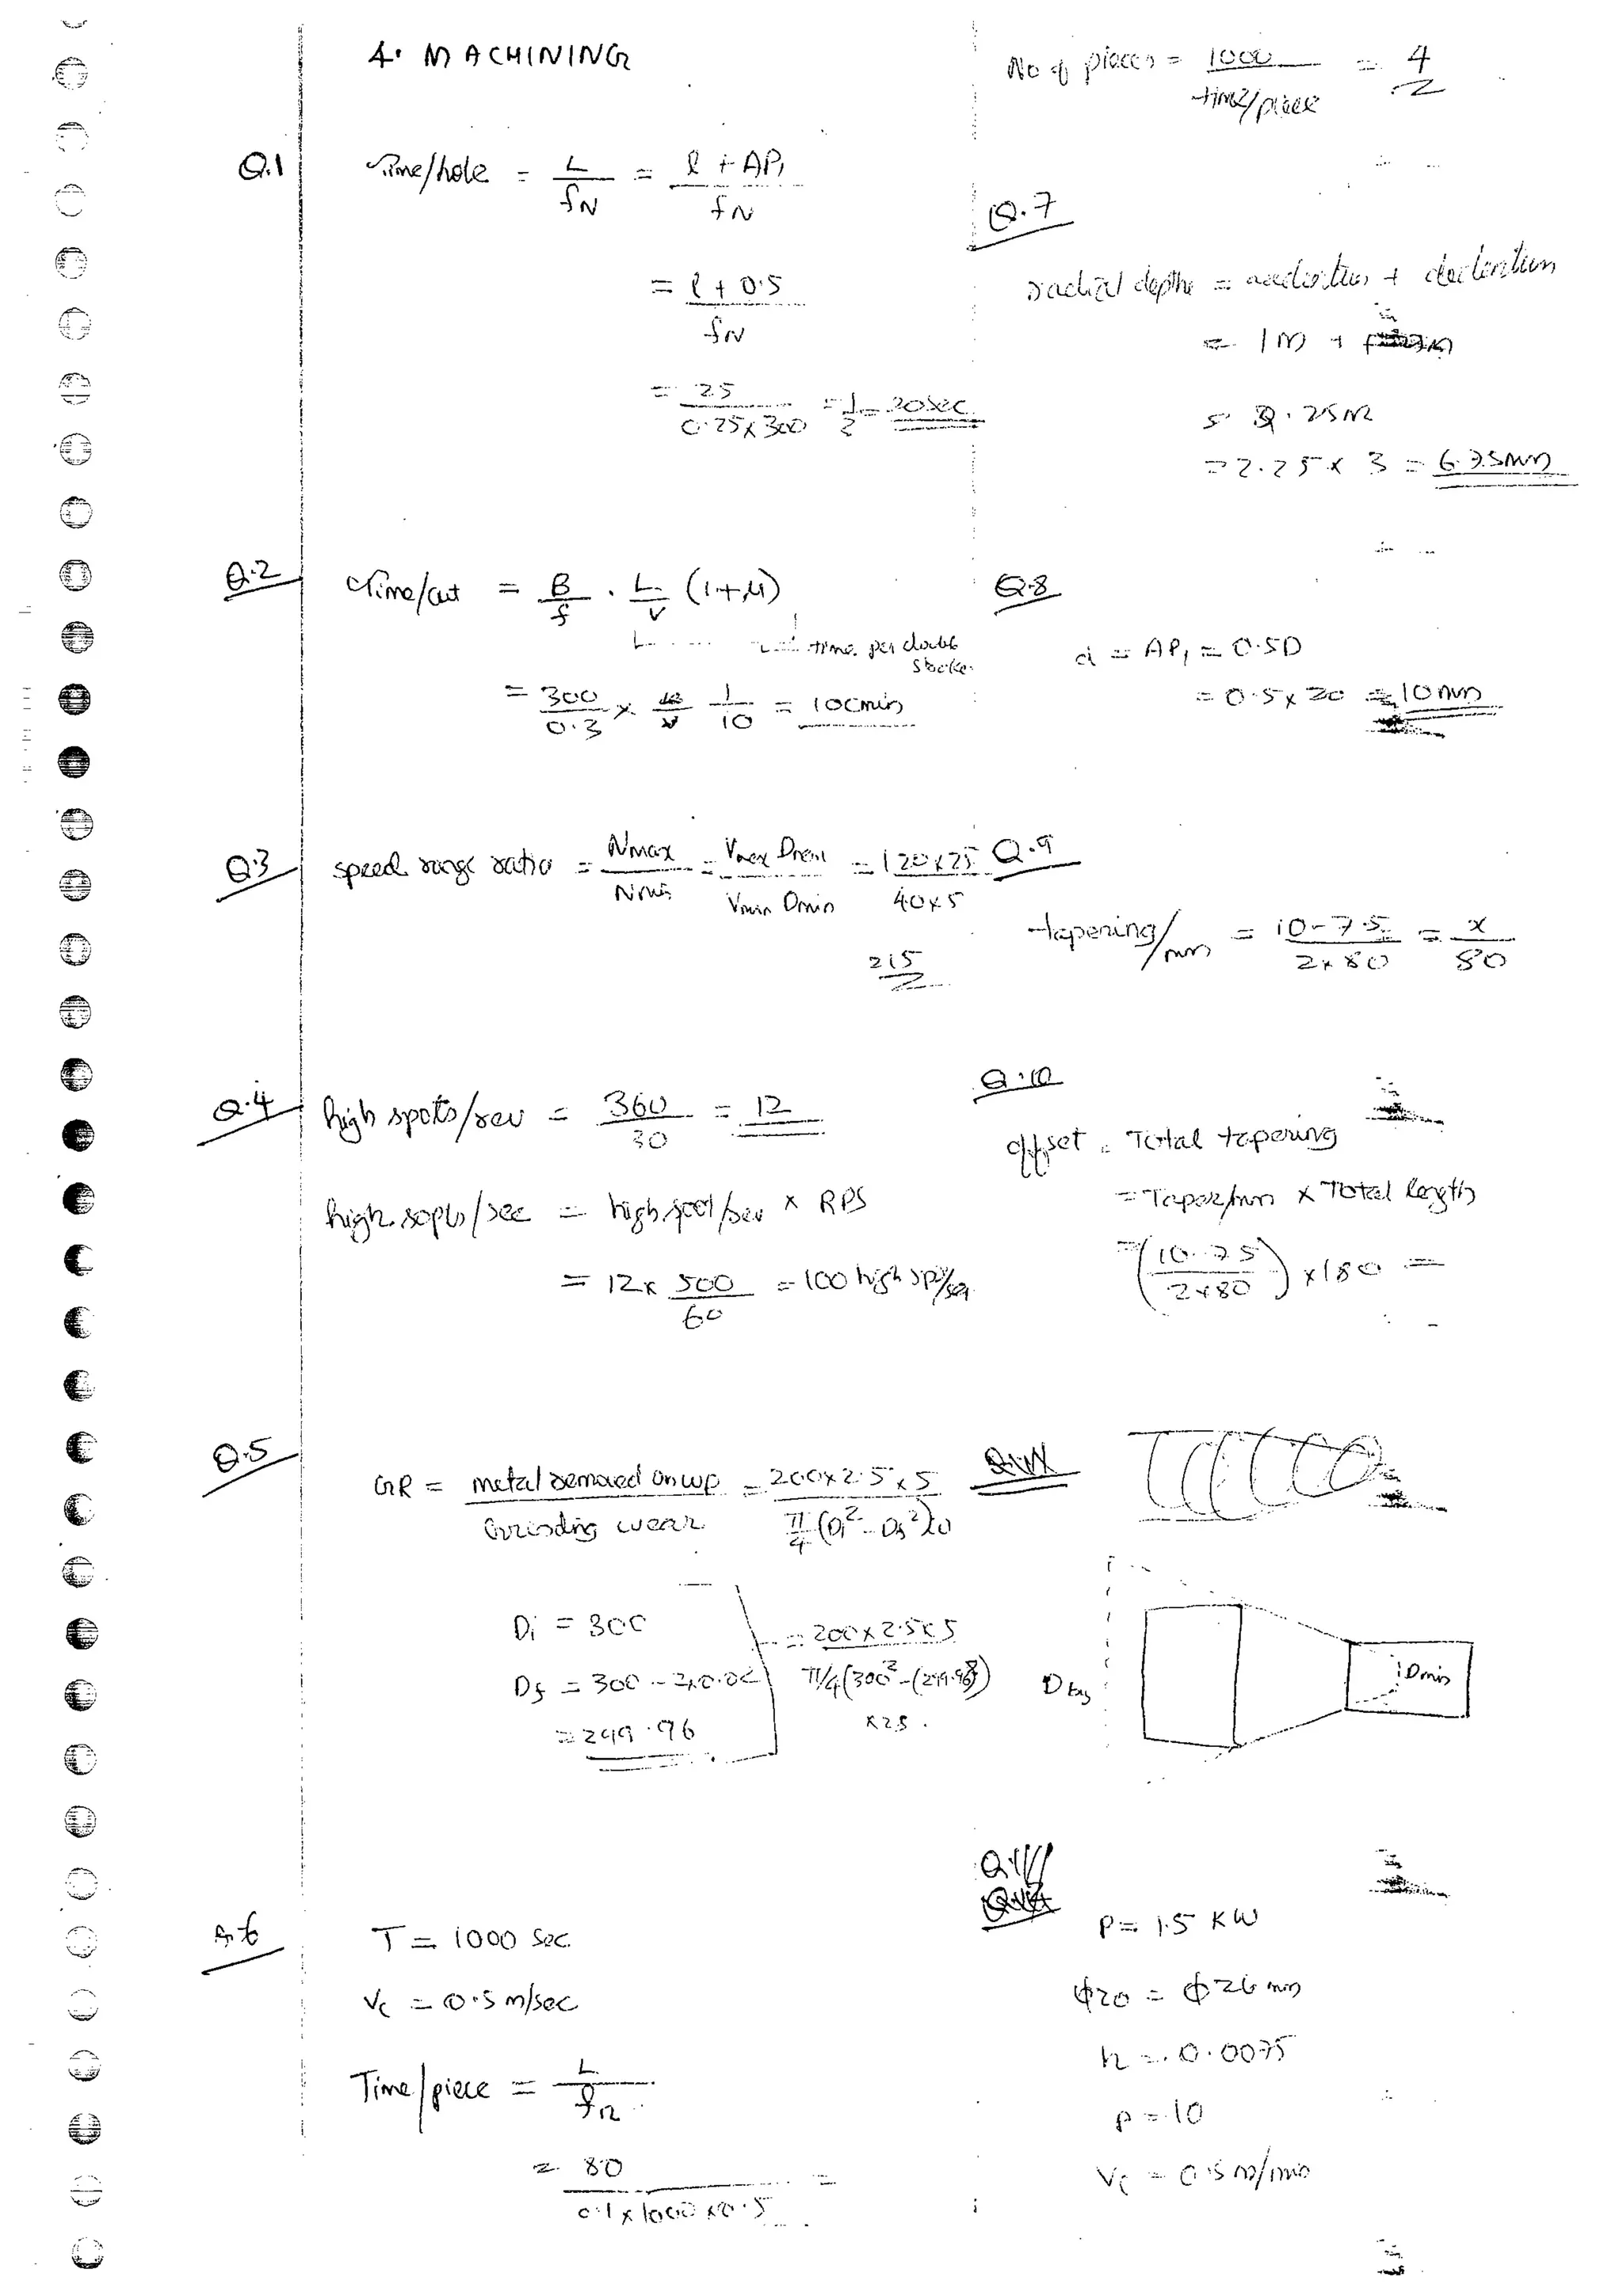 4. MACHINING
Q.1
Time/hole = L/fN = l + AP1/fN
= l + 0.5/fN
= 25/0.25x300 = 1/2 = 20sec
Q.2
Time/cut = B/f . L/v (1+M)
time per double
stroke
= 300/0.3 x 1/10 = 100min
Q.3
speed range ratio = Nmax/Nmin = Vmax Dmax/Vmin Dmin = 120x25/40x5
= 15
Q.4
high spots/rev = 360/30 = 12
high spots/sec = high spot/rev x RPS
= 12x 500/60 = 100 high spt/sec
Q.5
GR = metal removed on wp/Grinding wear = 200x2.5x5/π/4(Di²-Df²)20
Di = 300
Df = 300 - 2x0.02
= 299.96
= 200x2.5x5/π/4(300²-(299.98))
x25.
Q.6
T = 1000 sec.
Vc = 0.5 m/sec
Time/piece = L/fn
= 80/0.1x1000x0.5 =
No of pieces = 1000/time/piece = 4
Q.7
radial depth =
= 2.25m
= 2.25 x 3 = 6.75mm
Q.8
d = AP1 = 0.5D
= 0.5x20 = 10mm
Q.9
tapering/mm = 10-7.5/2x80 = x/80
Q.10
offset = Total tapering
= Taper/mm x Total length
= (10-7.5/2x80) x180 =
Dmin
Q.11
P = 1.5 KW
ϕ20 = ϕ26 mm
h = 0.0075
p = 10
Vc = 0.5 m/min